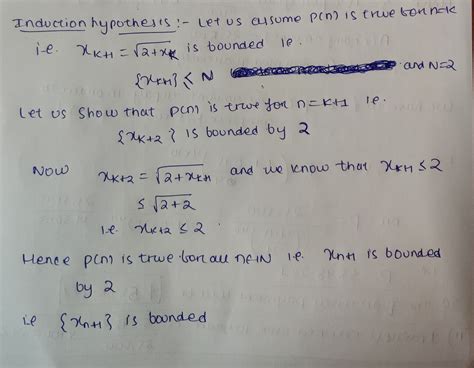 Induction hypothesis :- Let us assume P(n) is true for n=k
i.e. x_{k+1} = √(2+x_k) is bounded ie.
{x_{k+1}} ≤ N and N=2
Let us show that P(n) is true for n=k+1 ie.
{x_{k+2}} is bounded by 2
Now x_{k+2} = √(2+x_{k+1}) and we know that x_{k+1} ≤ 2
≤ √(2+2)
i.e. x_{k+2} ≤ 2
Hence P(n) is true for all n∈IN i.e. x_{n+1} is bounded
by 2
ie {x_{n+1}} is bounded